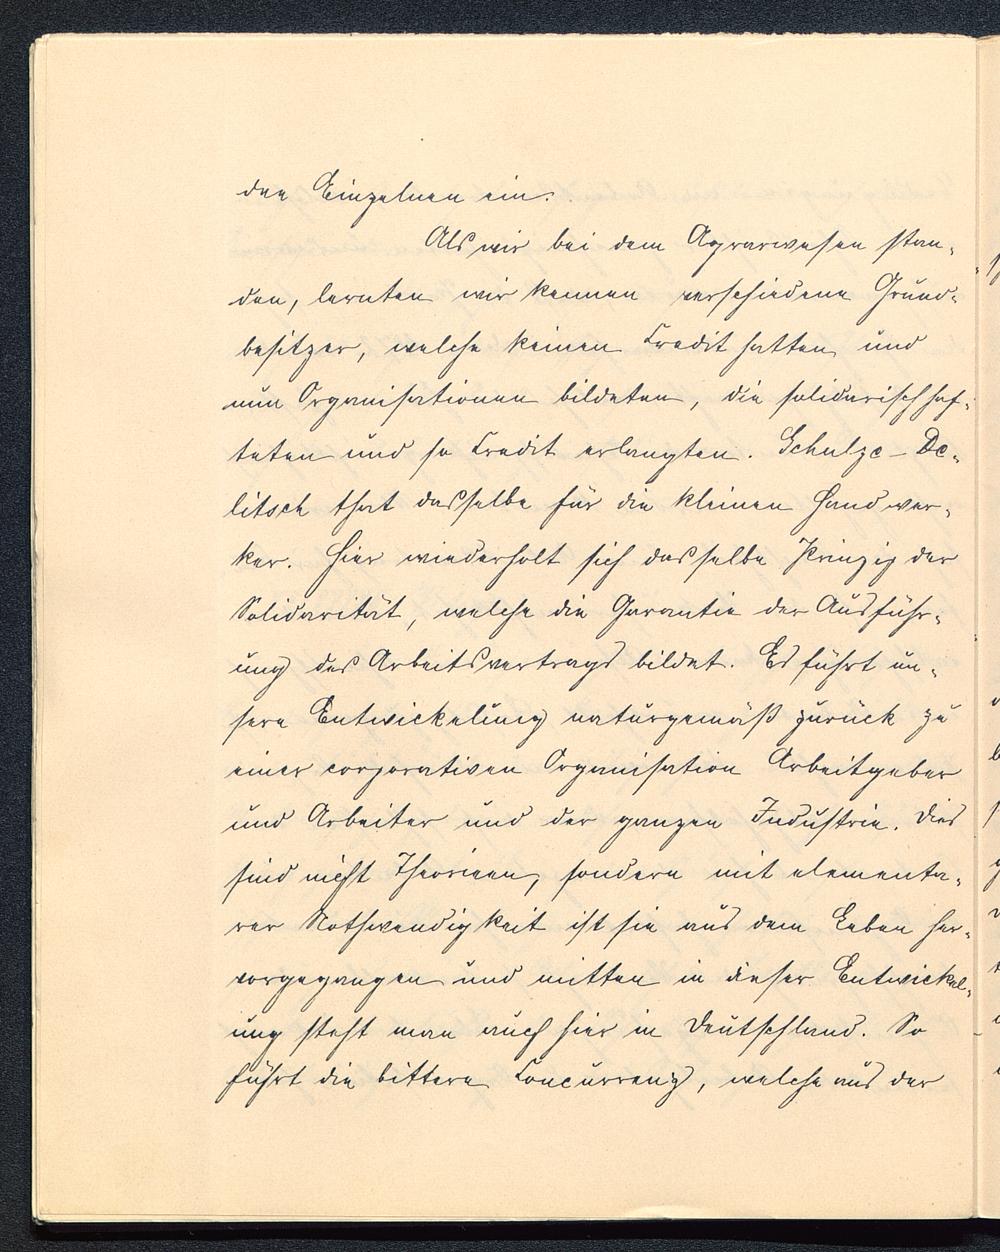 den Einzelnen ein.
Als wir bei dem Agrarwesen stan-
den, lernten wir kennen verschiedene Grund-
besitzer, welche keinen Credit hatten und
nun Organisationen bildeten, die solidarisch haf-
teten und so Credit erlangten. Schulze-De-
litsch that dasselbe für die kleinen Handwer-
ker. Hier wiederholt sich dasselbe Prinzip der
Solidarität, welche die Garantie der Ausführ-
ung des Arbeitsvertrags bildet. Es führt un-
sere Entwickelung naturgemäß zurück zu
einer corporativen Organisation Arbeitgeber
und Arbeiter und der ganzen Industrie. Dies
sind nicht Theorieen, sondern mit elementa-
rer Nothwendigkeit ist sie aus dem Leben her-
vorgegangen und mitten in dieser Entwickel-
ung steht man auch hier in Deutschland. So
führt die bittere Concurrenz, welche aus der